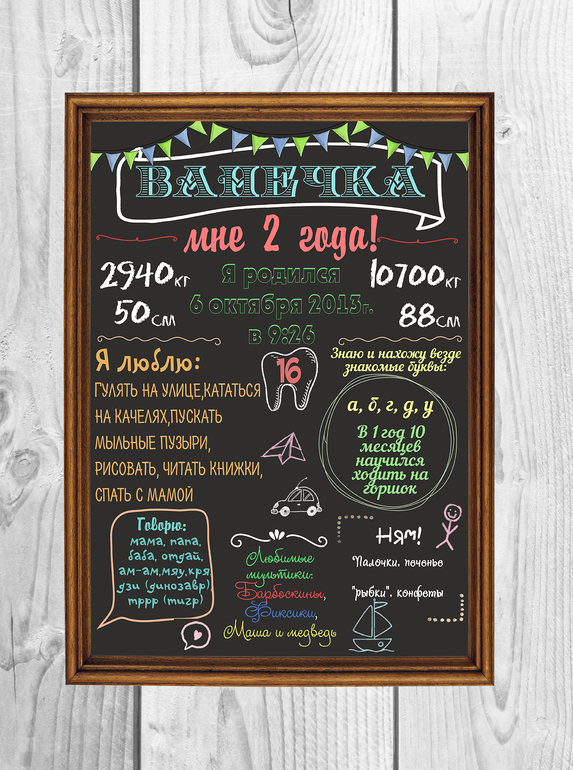 ВАНЕЧКА
мне 2 года!
2940кг
50см
Я родился
6 октября 2013г.
в 9:26
10700кг
88см
Я люблю:
Гулять на улице,кататься
на качелях,пускать
мыльные пузыри,
рисовать, читать книжки,
спать с мамой
16
Знаю и нахожу везде
знакомые буквы:
а, б, г, д, у
В 1 год 10
месяцев
научился
ходить на
горшок
Говорю:
мама, папа,
баба, отдай,
ам-ам,мяу,кря
дзи (динозавр)
тррр (тигр)
Любимые
мультики:
Барбоскины,
Фиксики,
Маша и медведь
Ням!
Палочки, печенье
"рыбки", конфеты